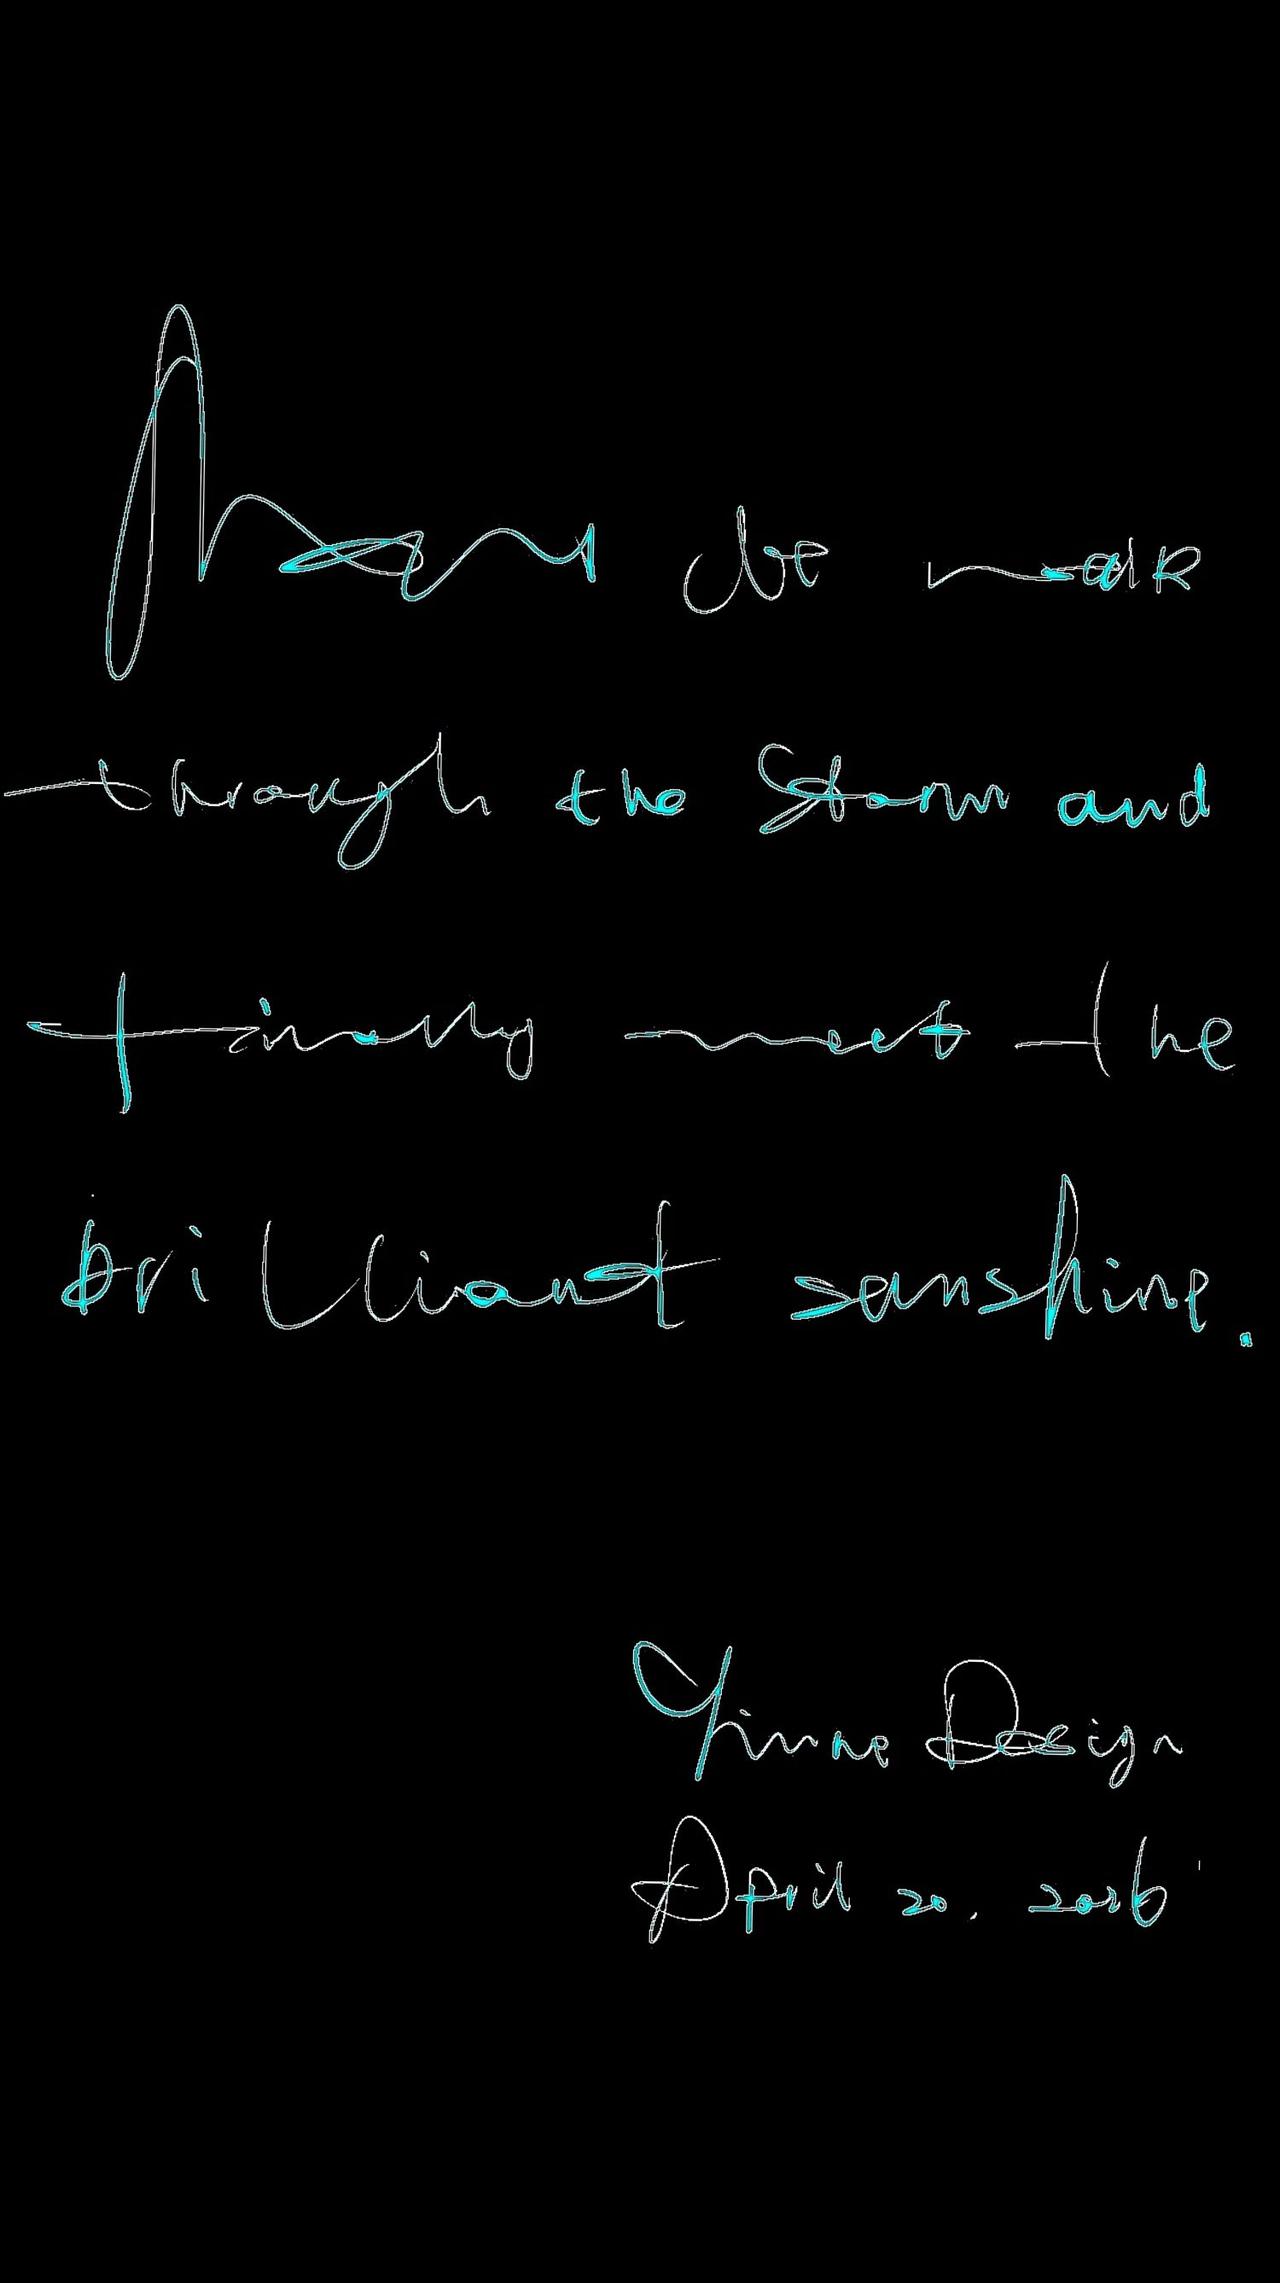 May we walk
through the storm and
finally meet the
brilliant sunshine.
Design
April 20. 2026